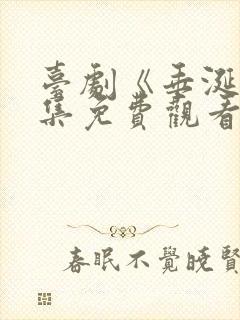 臺劇《垂涎
集免費觀看
春眠不覺曉賢